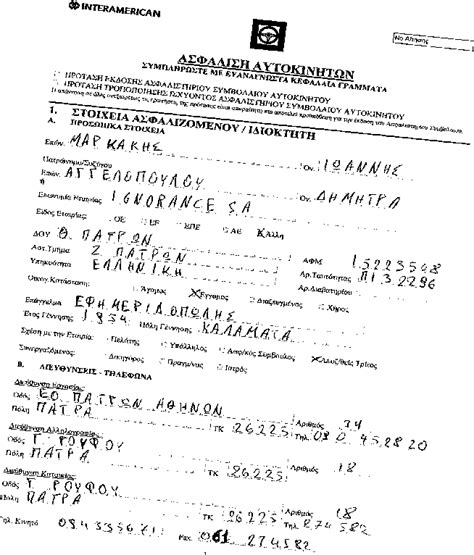 INTERAMERICAN
Νο Αίτησης
ΑΣΦΑΛΙΣΗ ΑΥΤΟΚΙΝΗΤΩΝ
ΣΥΜΠΛΗΡΩΣΤΕ ΜΕ ΕΥΑΝΑΓΝΩΣΤΑ ΚΕΦΑΛΑΙΑ ΓΡΑΜΜΑΤΑ
ΠΡΟΤΑΣΗ ΕΚΔΟΣΗΣ ΑΣΦΑΛΙΣΤΗΡΙΟΥ ΣΥΜΒΟΛΑΙΟΥ ΑΥΤΟΚΙΝΗΤΟΥ
ΠΡΟΤΑΣΗ ΤΡΟΠΟΠΟΙΗΣΗΣ ΙΣΧΥΟΝΤΟΣ ΑΣΦΑΛΙΣΤΗΡΙΟΥ ΣΥΜΒΟΛΑΙΟΥ ΑΥΤΟΚΙΝΗΤΟΥ
1. ΣΤΟΙΧΕΙΑ ΑΣΦΑΛΙΖΟΜΕΝΟΥ / ΙΔΙΟΚΤΗΤΗ
Α. ΠΡΟΣΩΠΙΚΑ ΣΤΟΙΧΕΙΑ
Επών. ΜΑΡΚΑΚΗΣ Ον. ΙΩΑΝΝΗΣ
Πατρώνυμο/Συζύγου
Επών. ΑΓΓΕΛΟΠΟΥΛΟΥ Ον. ΔΗΜΗΤΡΑ
ή
Επωνυμία Εταιρίας IGNORANCE SA
Είδος Εταιρίας: ΟΕ ΕΕ ΕΠΕ ΑΕ Άλλη
ΔΟΥ Θ ΠΑΤΡΩΝ ΑΦΜ 15223548
Αστ.Τμήμα Ζ ΠΑΤΡΩΝ Αρ.Ταυτότητας Π132296
Υπηκοότητα ΕΛΛΗΝΙΚΗ Αρ.Διαβατηρίου
Οικογ.Κατάσταση: Άγαμος Έγγαμος Διαζευγμένος Χήρος
Επάγγελμα ΕΦΗΜΕΡΙΔΟΠΩΛΗΣ
Έτος Γέννησης 1954 Πόλη Γέννησης ΚΑΛΑΜΑΤΑ
Σχέση με την Εταιρία: Πελάτης Υπάλληλος Ασφ/κός Σύμβουλος Τρίτος
Συνεργαζόμενος: Δικηγόρος Πραγμ/νας Ιατρός
Β. ΔΙΕΥΘΥΝΣΕΙΣ - ΤΗΛΕΦΩΝΑ
Διεύθυνση Εργασίας:
Οδός ΕΟ ΠΑΤΡΩΝ ΑΘΗΝΩΝ Αριθμός 34
Πόλη ΠΑΤΡΑ ΤΚ 26225 Τηλ. 452820
Διεύθυνση Αλληλογραφίας:
Οδός Γ. ΡΟΥΦΟΥ Αριθμός 18
Πόλη ΠΑΤΡΑ ΤΚ 26225
Διεύθυνση Κατοικίας:
Οδός Γ ΡΟΥΦΟΥ Αριθμός 18
Πόλη ΠΑΤΡΑ ΤΚ 26225 Τηλ. 274582
Τηλ. Κινητό Fax. 061 274582